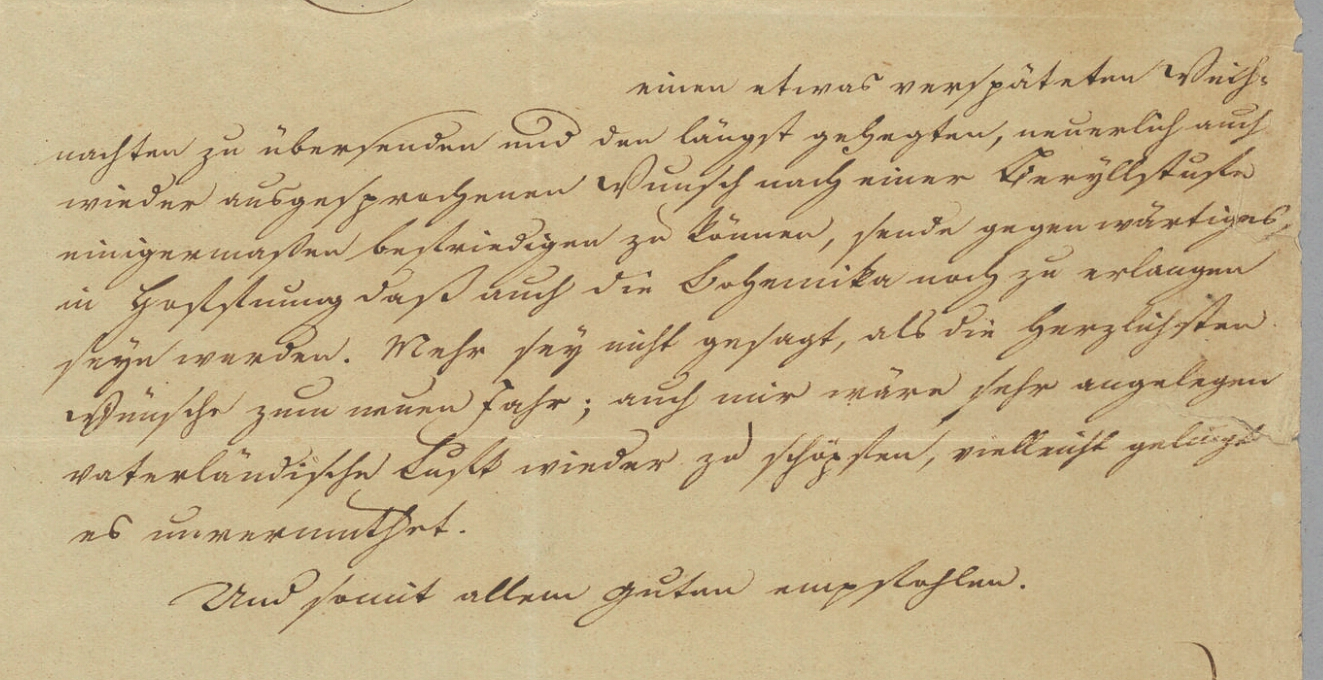 einen etwas verspäteten Weih-
nachten zu übersenden und den längst gehegten, neuerlich auch
wieder ausgesprochenen Wunsch nach einer Beryllstufe
einigermaßen befriedigen zu können, sende gegenwärtiges,
in Hoffnung daß auch die Bohemika noch zu erlangen
seyn werden. Mehr sey nicht gesagt, als die herzlichsten
Wünsche zum neuen Jahr; auch mir wäre sehr angelegen
vaterländische Luft wieder zu schöpfen, vielleicht gelingt
es unvermuthet.
Und somit allem guten empfohlen.